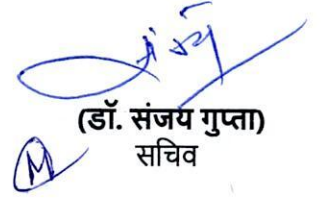 (डॉ. संजय गुप्ता)
सचिव
M